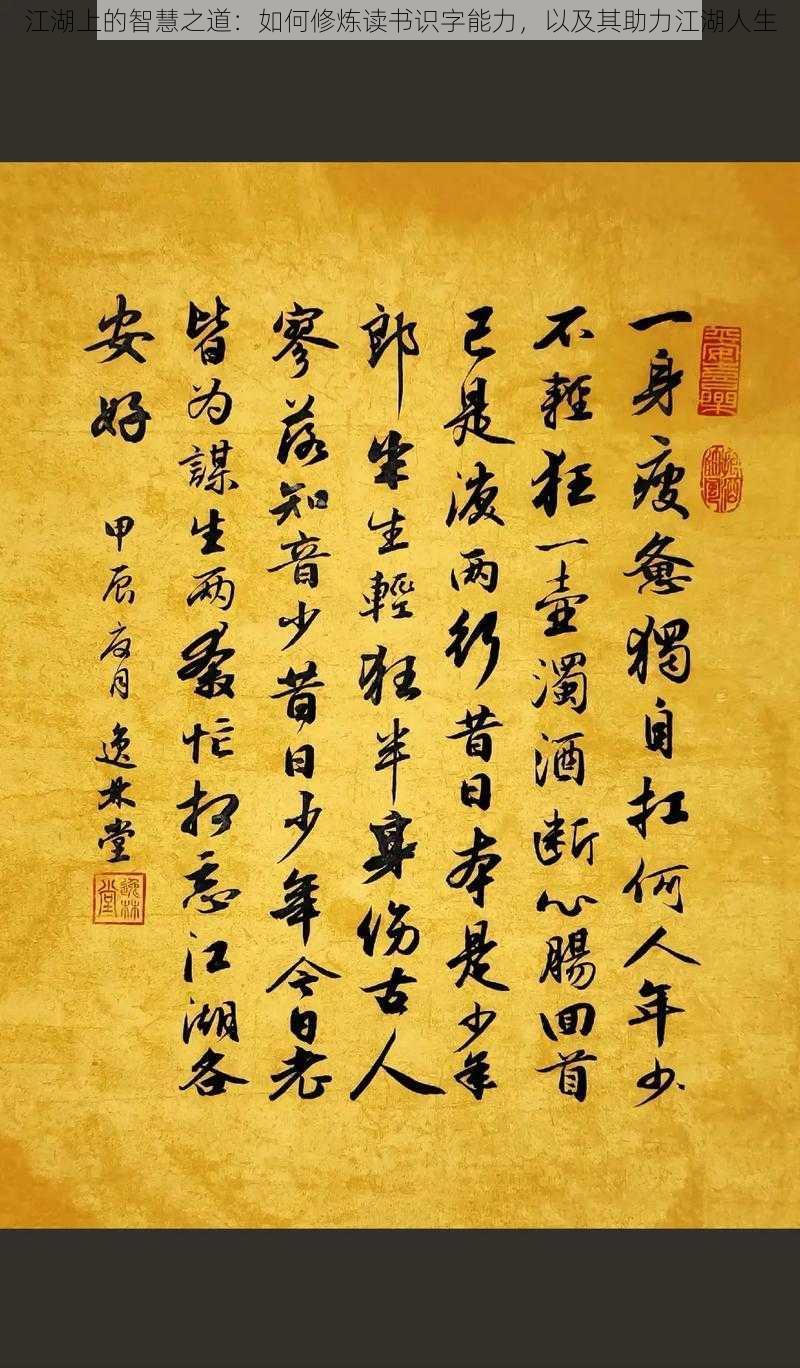 江湖上的智慧之道：如何修炼读书识字能力，以及其助力江湖人生
一身疲惫獨自扛何人年少
不輕狂一壺濁酒断心腸回首
已是淚两行昔日本是少年
郎半生輕狂半身伤古人
寥落知音少昔日少年今日老
皆为謀生两鬓忙相忘江湖各
安好
甲辰夏月逸林堂
逸林堂